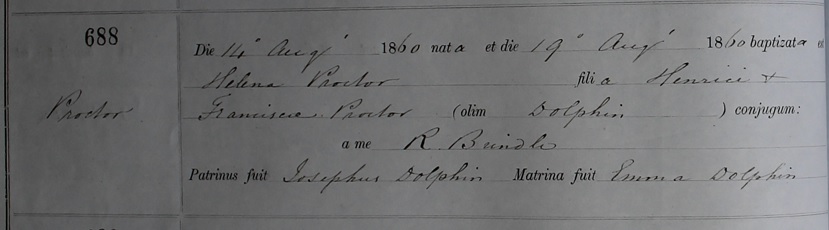 688
Die 14° Augˢ 1860 nata et die 19° Augˢ 1860 baptizata est
Helena Proctor filia Henrici +
Proctor Franciscæ Proctor (olim Dolphin ) conjugum:
a me R. Brindle
Patrinus fuit Josephus Dolphin Matrina fuit Emma Dolphin